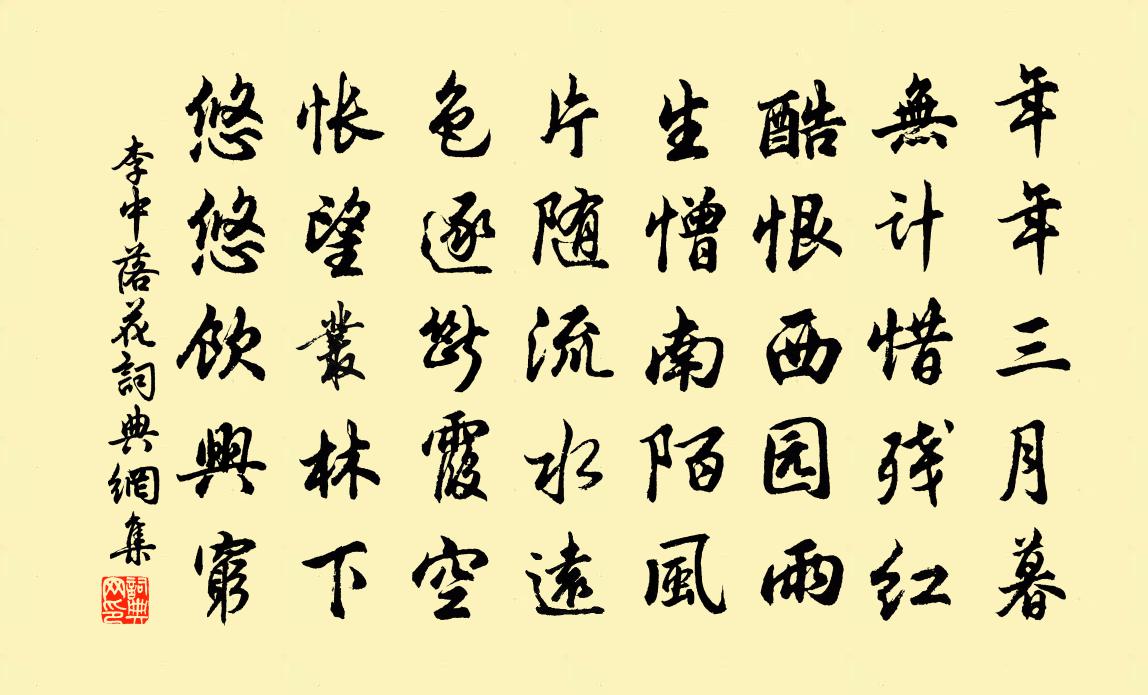 年年三月暮
無计惜残红
酷恨西园雨
生憎南陌風
片随流水遠
色逐断霞空
怅望叢林下
悠悠飲興窮
李中落花詞典網集
詞典网印